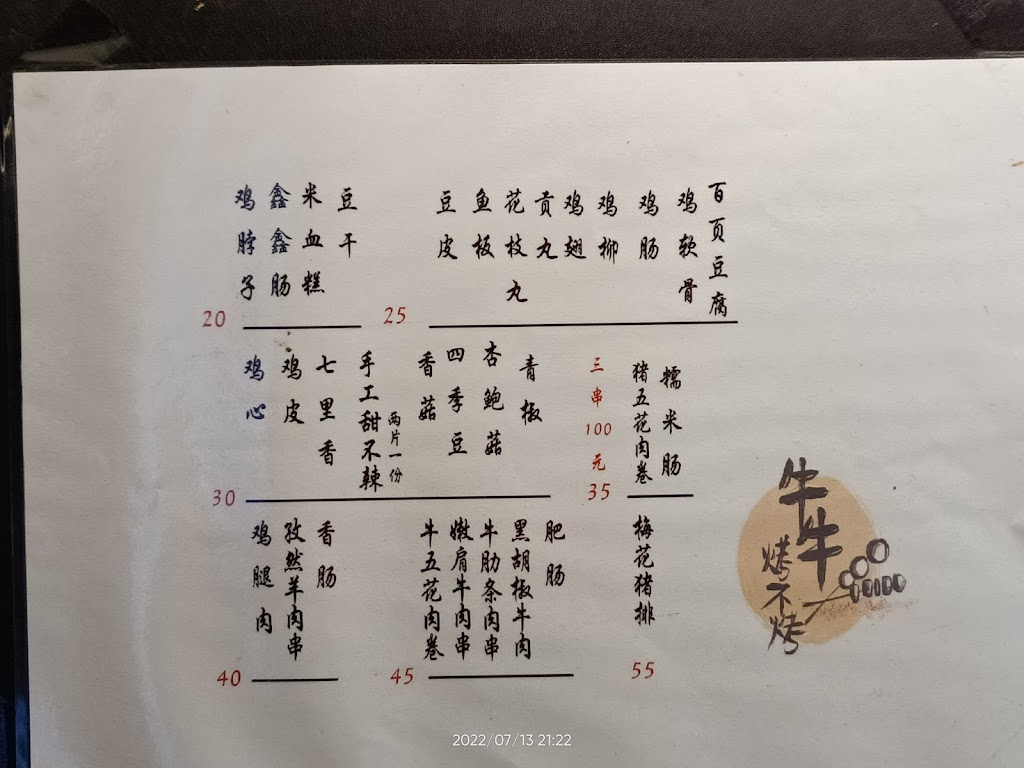 百页豆腐
鸡软骨
鸡肠
鸡柳
鸡翅
贡丸
花枝丸
鱼板
豆皮
25
豆干
米血糕
鑫鑫肠
鸡脖子
20
糯米肠
猪五花肉卷
35
三串100元
青椒
杏鲍菇
四季豆
香菇
两片一份
手工甜不辣
七里香
鸡皮
鸡心
30
梅花猪排
55
肥肠
黑胡椒牛肉
牛肋条肉串
嫩肩牛肉串
牛五花肉卷
45
香肠
孜然羊肉串
鸡腿肉
40
牛牛
烤不烤
2022/07/13 21:22